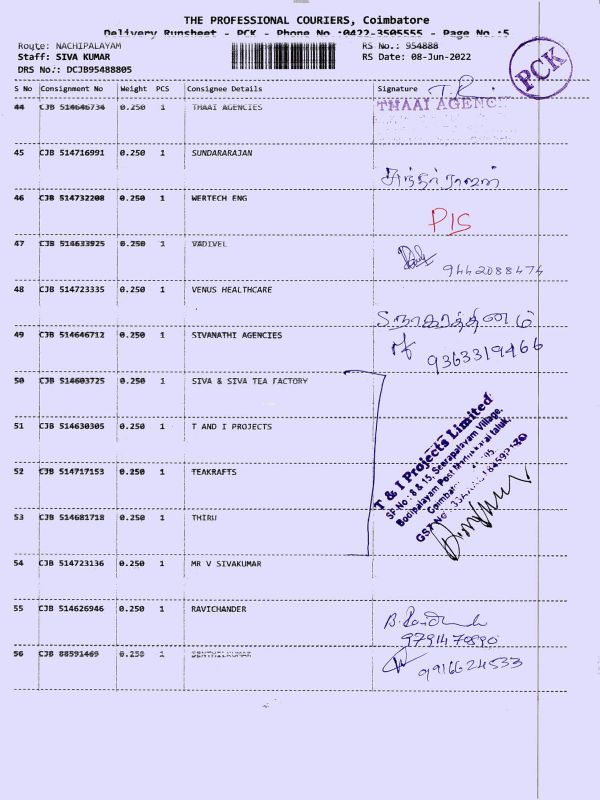 THE PROFESSIONAL COURIERS, Coimbatore
Delivery Runsheet - PCK - Phone No :0422-3505555 - Page No :5
Route: NACHIPALAYAM
RS No.: 954888
Staff: SIVA KUMAR
RS Date: 08-Jun-2022
DRS No.: DCJB95488805
PCK
S No Consignment No Weight PCS Consignee Details Signature
44 CJB 514646734 0.250 1 THAAI AGENCIES
THAAI AGENC
45 CJB 514716991 0.250 1 SUNDARARAJAN
சுந்தர்ராஜன்
46 CJB 514732208 0.250 1 WERTECH ENG
PIS
47 CJB 514633925 0.250 1 VADIVEL
9442088474
48 CJB 514723335 0.250 1 VENUS HEALTHCARE
49 CJB 514646712 0.250 1 SIVANATHI AGENCIES
9363319466
50 CJB 514603725 0.250 1 SIVA & SIVA TEA FACTORY
51 CJB 514630305 0.250 1 T AND I PROJECTS
T & I Projects Limited
SF No : 8 & 15, Seerapalayam Village,
Bodipalayam Post Madukkarai taluk,
GST No
52 CJB 514717153 0.250 1 TEAKRAFTS
53 CJB 514681718 0.250 1 THIRU
54 CJB 514723136 0.250 1 MR V SIVAKUMAR
55 CJB 514626946 0.250 1 RAVICHANDER
9791470890
56 CJB 88591469 0.250 1 SENTHILKUMAR
9916624533